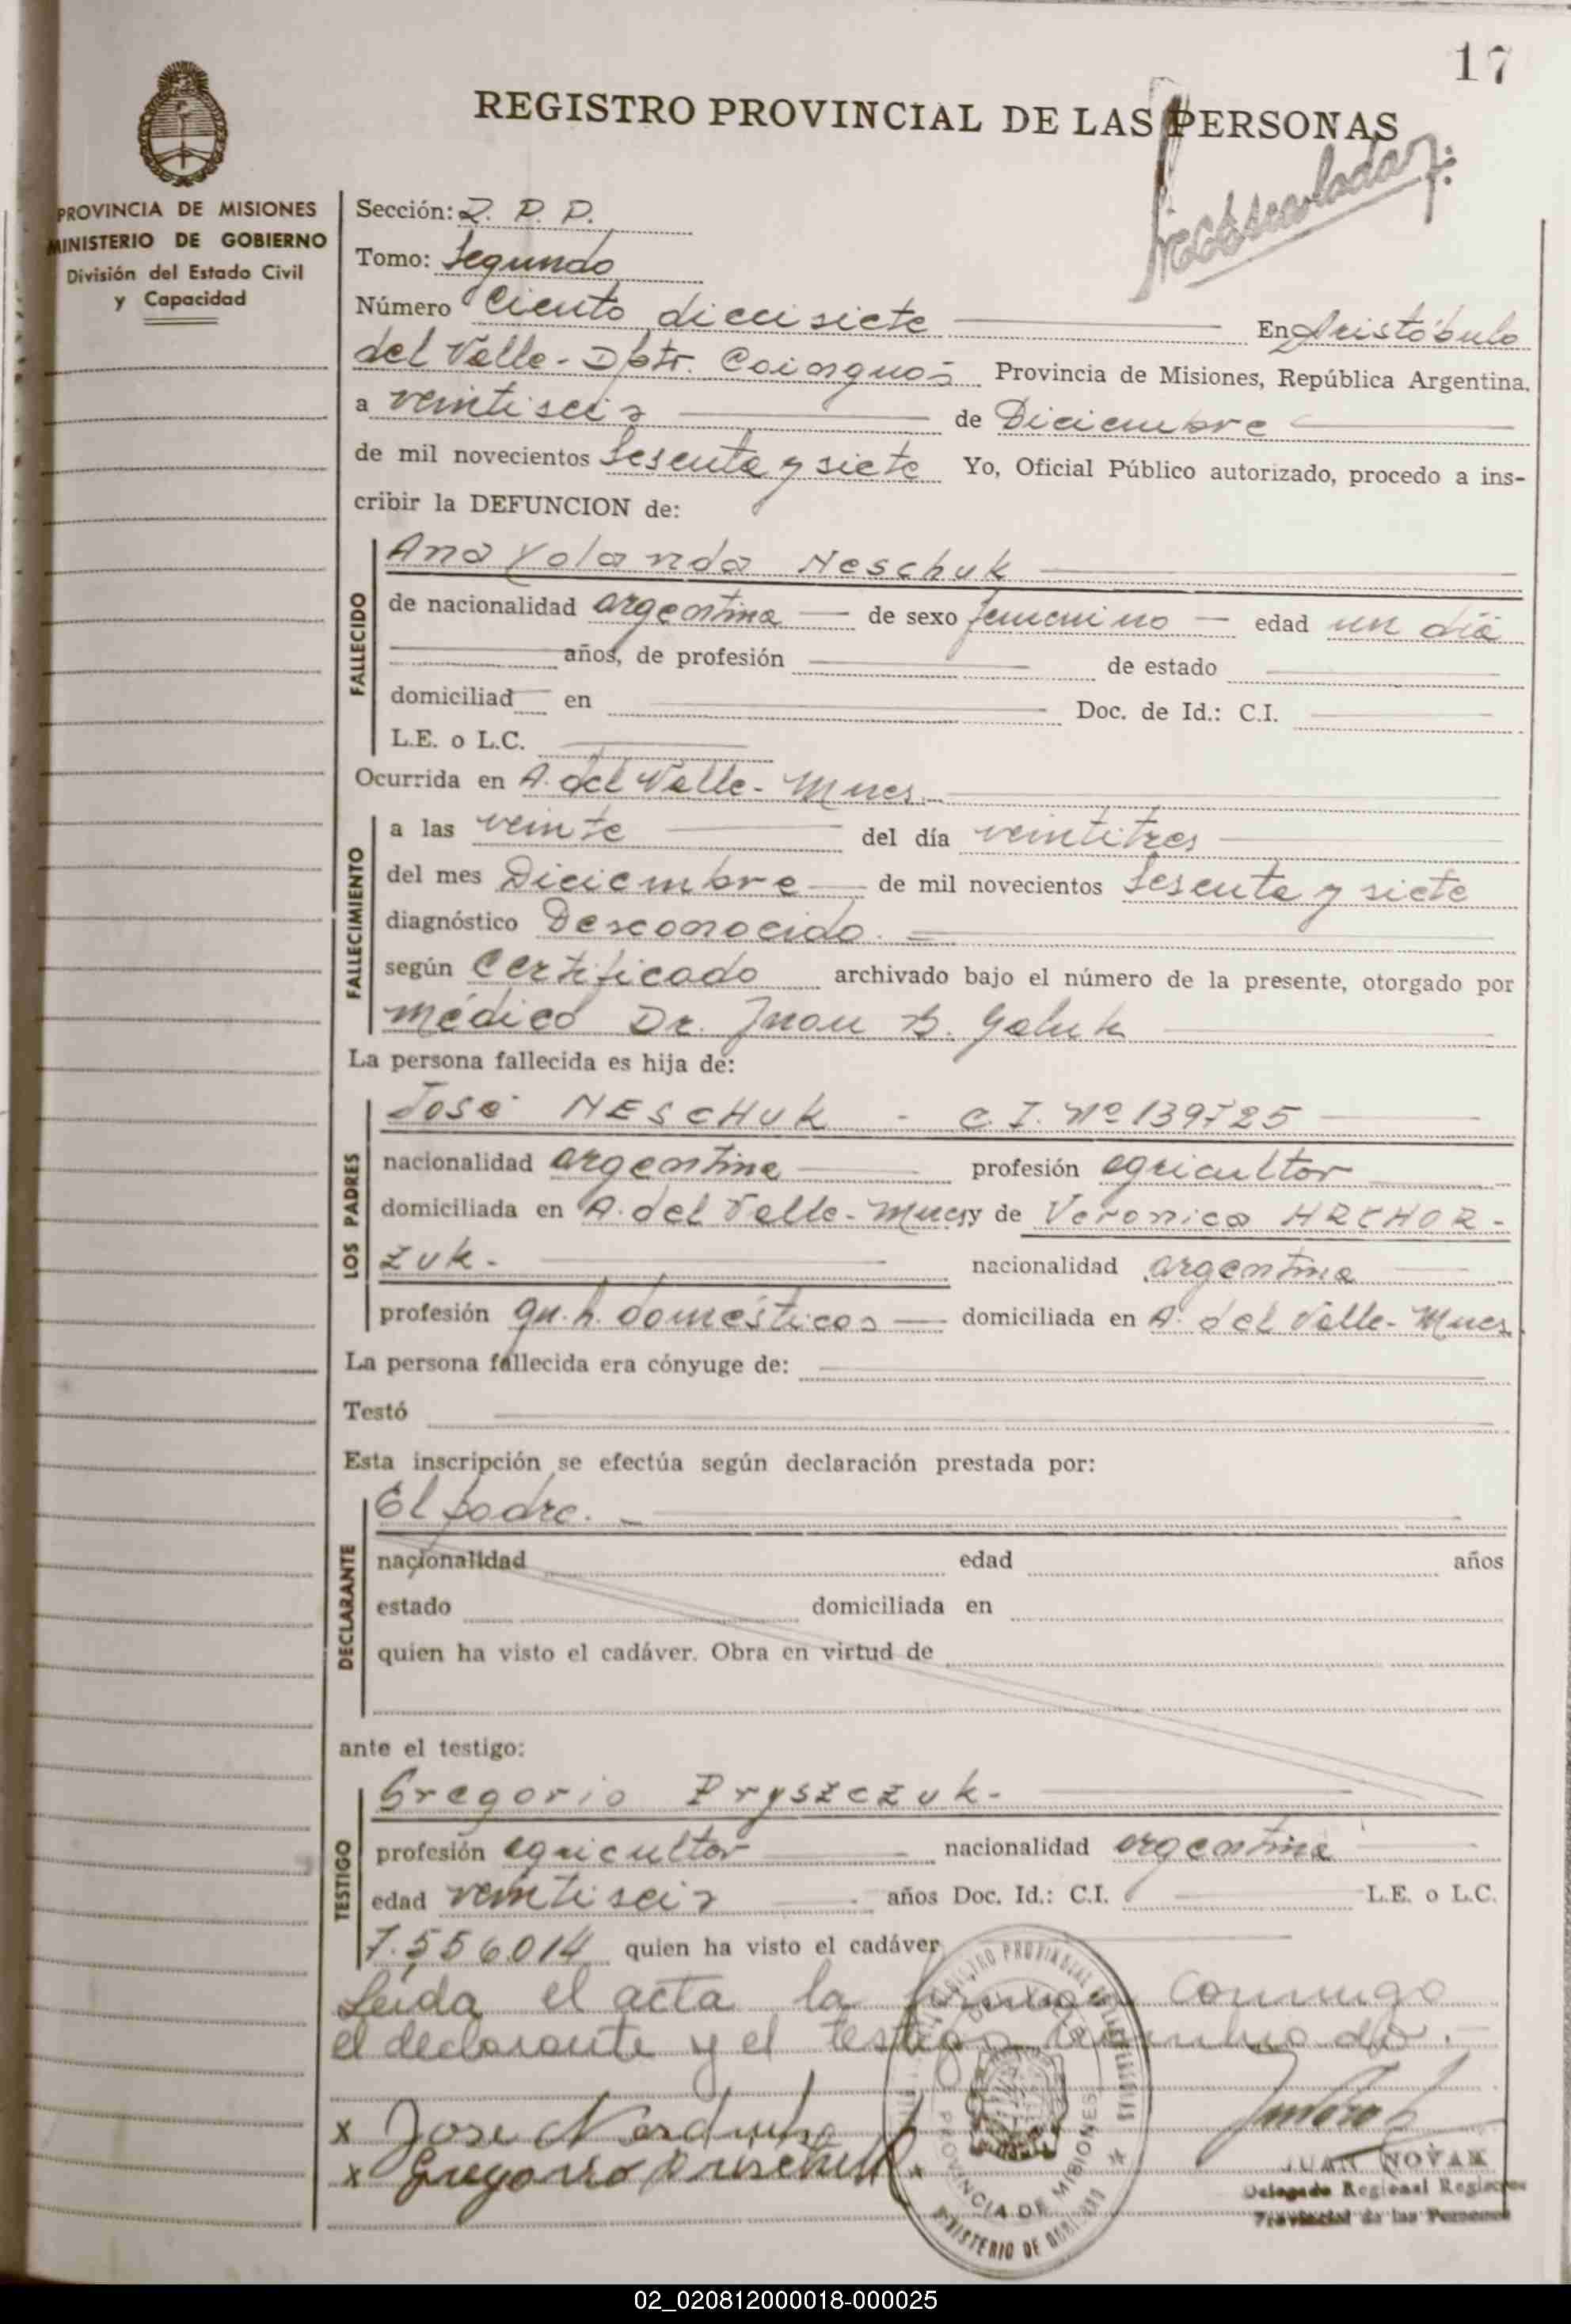 17
REGISTRO PROVINCIAL DE LAS PERSONAS
PROVINCIA DE MISIONES
MINISTERIO DE GOBIERNO
División del Estado Civil
y Capacidad
Sección: 2. P. P.
Tomo: Segundo
Número Ciento diecisiete En Aristóbulo
del Valle - Dpto. Cainguás Provincia de Misiones, República Argentina,
a veintiseis de Diciembre
de mil novecientos Sesenta y siete Yo, Oficial Público autorizado, procedo a ins-
cribir la DEFUNCION de:
FALLECIDO
Ana Yolanda Neschuk
de nacionalidad argentina de sexo femenino edad un día
años, de profesión de estado
domiciliad en Doc. de Id.: C.I.
L.E. o L.C.
Ocurrida en A. del Valle - Mnes.
FALLECIMIENTO
a las veinte del día veintitres
del mes Diciembre de mil novecientos Sesenta y siete
diagnóstico Desconocido.
según Certificado archivado bajo el número de la presente, otorgado por
médico Dr. Juan B. Galuk
La persona fallecida es hija de:
LOS PADRES
José NESCHUK - C.I. Nº 139725
nacionalidad argentina profesión agricultor
domiciliada en A. del Valle - Mnes y de Veronica HRCHOR-
ZUK. - nacionalidad argentina
profesión qu. h. domésticos domiciliada en A. del Valle - Mnes
La persona fallecida era cónyuge de:
Testó
Esta inscripción se efectúa según declaración prestada por:
DECLARANTE
El padre. -
nacionalidad edad años
estado domiciliada en
quien ha visto el cadáver. Obra en virtud de
ante el testigo:
TESTIGO
Gregorio Pryszczuk. -
profesión agricultor nacionalidad argentina
edad veintiseis años Doc. Id.: C.I. L.E. o L.C.
7.556.014 quien ha visto el cadáver
Leida el acta la firman conmigo
el declarante y el testigo nombrado. -
x Jose
x Gregorio
REGISTRO PROVINCIAL DE LAS PERSONAS
PROVINCIA DE MISIONES
MINISTERIO DE GOBIERNO
JUAN NOVAK
Delegado Regional Registro
Provincial de las Personas
02_020812000018-000025